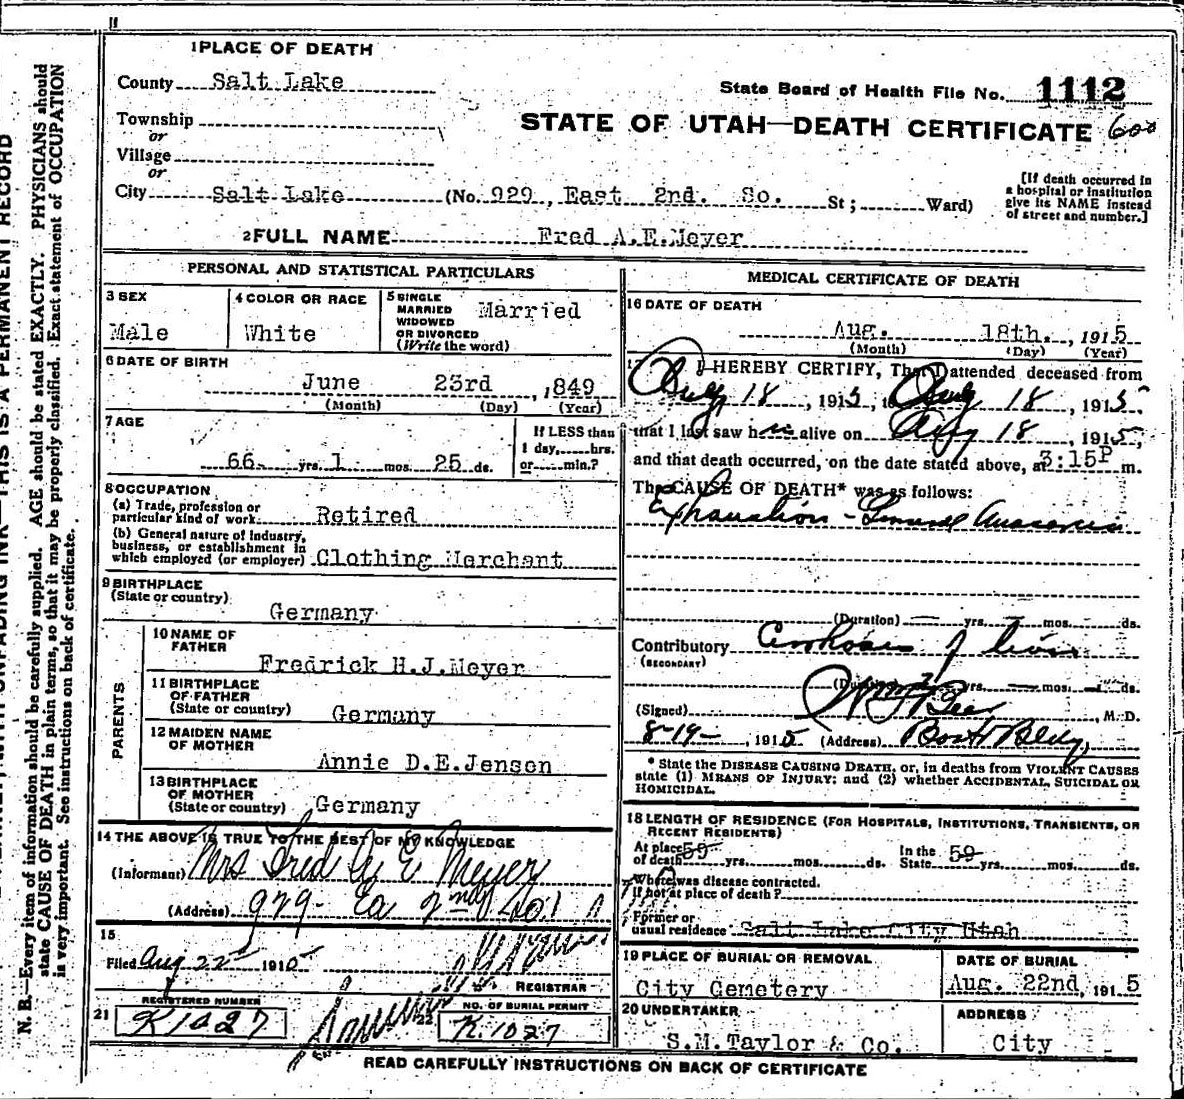 1 PLACE OF DEATH
County Salt Lake
State Board of Health File No. 1112
Township
or
STATE OF UTAH—DEATH CERTIFICATE 600
Village
or
City Salt Lake (No. 929, East 2nd. So. St; Ward)
[If death occurred in
a hospital or institution
give its NAME instead
of street and number.]
2 FULL NAME Fred A.E.Meyer
PERSONAL AND STATISTICAL PARTICULARS
3 SEX
Male
4 COLOR OR RACE
White
5 SINGLE
MARRIED
WIDOWED
OR DIVORCED
(Write the word)
Married
6 DATE OF BIRTH
June 23rd , 849
(Month) (Day) (Year)
7 AGE
66 yrs. 1 mos. 25 ds.
If LESS than
1 day, hrs.
or min.?
8 OCCUPATION
(a) Trade, profession or
particular kind of work Retired
(b) General nature of industry,
business, or establishment in
which employed (or employer) Clothing Merchant
9 BIRTHPLACE
(State or country)
Germany
PARENTS
10 NAME OF
FATHER
Fredrick H.J.Meyer
11 BIRTHPLACE
OF FATHER
(State or country) Germany
12 MAIDEN NAME
OF MOTHER
Annie D.E.Jenson
13 BIRTHPLACE
OF MOTHER
(State or country) Germany
14 THE ABOVE IS TRUE TO THE BEST OF MY KNOWLEDGE
(Informant) Mrs Fred E Meyer
(Address) 929- Ea 2nd So
15
Filed Aug 22 1915
REGISTRAR
21 REGISTERED NUMBER
K1027
22 NO. OF BURIAL PERMIT
K.1027
MEDICAL CERTIFICATE OF DEATH
16 DATE OF DEATH
Aug. 18th. , 1915
(Month) (Day) (Year)
17 I HEREBY CERTIFY, That I attended deceased from
Aug 18 , 1915, to Aug 18 , 1915.
that I last saw him alive on Aug 18 , 1915,
and that death occurred, on the date stated above, at 3:15P m.
The CAUSE OF DEATH* was as follows:
Exhaustion - General Anasarca
(Duration) yrs. mos. ds.
Contributory Cirrhosis of liver
(SECONDARY)
(Duration) 2 yrs. mos. ds.
(Signed) , M. D.
8-19- , 1915 (Address)
* State the DISEASE CAUSING DEATH, or, in deaths from VIOLENT CAUSES
state (1) MEANS OF INJURY; and (2) whether ACCIDENTAL, SUICIDAL OR
HOMICIDAL.
18 LENGTH OF RESIDENCE (FOR HOSPITALS, INSTITUTIONS, TRANSIENTS, OR
RECENT RESIDENTS)
At place
of death 59 yrs. mos. ds.
In the
State 59 yrs. mos. ds.
Where was disease contracted,
If not at place of death?
Former or
usual residence Salt Lake City Utah
19 PLACE OF BURIAL OR REMOVAL
City Cemetery
DATE OF BURIAL
Aug. 22nd, 1915
20 UNDERTAKER
S.M.Taylor & Co.
ADDRESS
City
READ CAREFULLY INSTRUCTIONS ON BACK OF CERTIFICATE
THIS IS A PERMANENT RECORD
N. B.—Every item of information should be carefully supplied. AGE should be stated EXACTLY. PHYSICIANS should
state CAUSE OF DEATH in plain terms, so that it may be properly classified. Exact statement of OCCUPATION
is very important. See instructions on back of certificate.